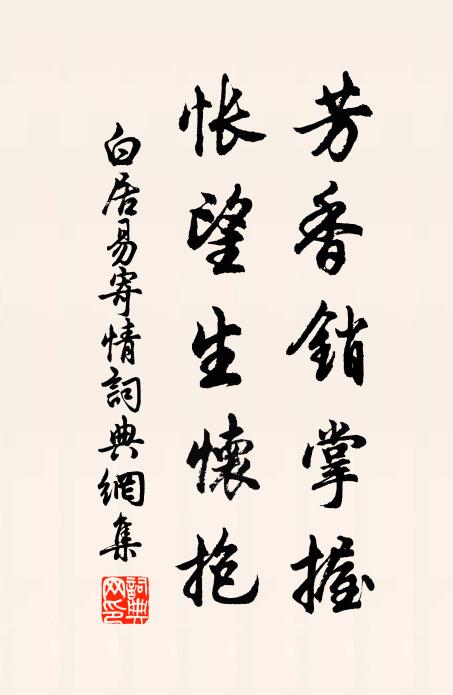 芳香銷掌握
悵望生懷抱
白居易寄情詞典網集
詞典網印